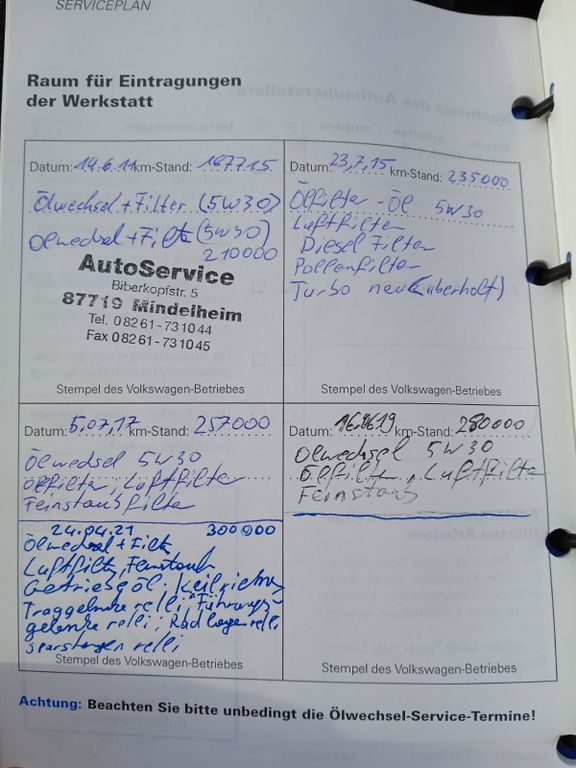 SERVICEPLAN
Raum für Eintragungen
der Werkstatt
Datum: 14.6.11 km-Stand: 187715
Ölwechsel + Filter (5W30)
Ölwechsel + Filt (5W30)
210000
AutoService
Biberkopfstr. 5
87719 Mindelheim
Tel. 08261-731044
Fax 08261-731045
Stempel des Volkswagen-Betriebes
Datum: 23,7,15 km-Stand: 235000
Ölfilter - Öl 5W30
Luftfilter
Diesel Filter
Pollenfilter
Turbo neu (überholt)
Stempel des Volkswagen-Betriebes
Datum: 5,07,17 km-Stand: 257000
Ölwechsel 5W30
Ölfilter, Luftfilter
Feinstaubfilter
24.04.21 300000
Ölwechsel + Filt
Luftfilt, Feinstaub
Getriebeöl; Keilriehm
Traggelenke relli; Führungs-
gelenke relli; Radlager relli
spurstangen relli
Stempel des Volkswagen-Betriebes
Datum: km-Stand: 280000
Ölwechsel 5W30
Ölfilt, Luftfilte
Feinstaub
Stempel des Volkswagen-Betriebes
Achtung: Beachten Sie bitte unbedingt die Ölwechsel-Service-Termine!